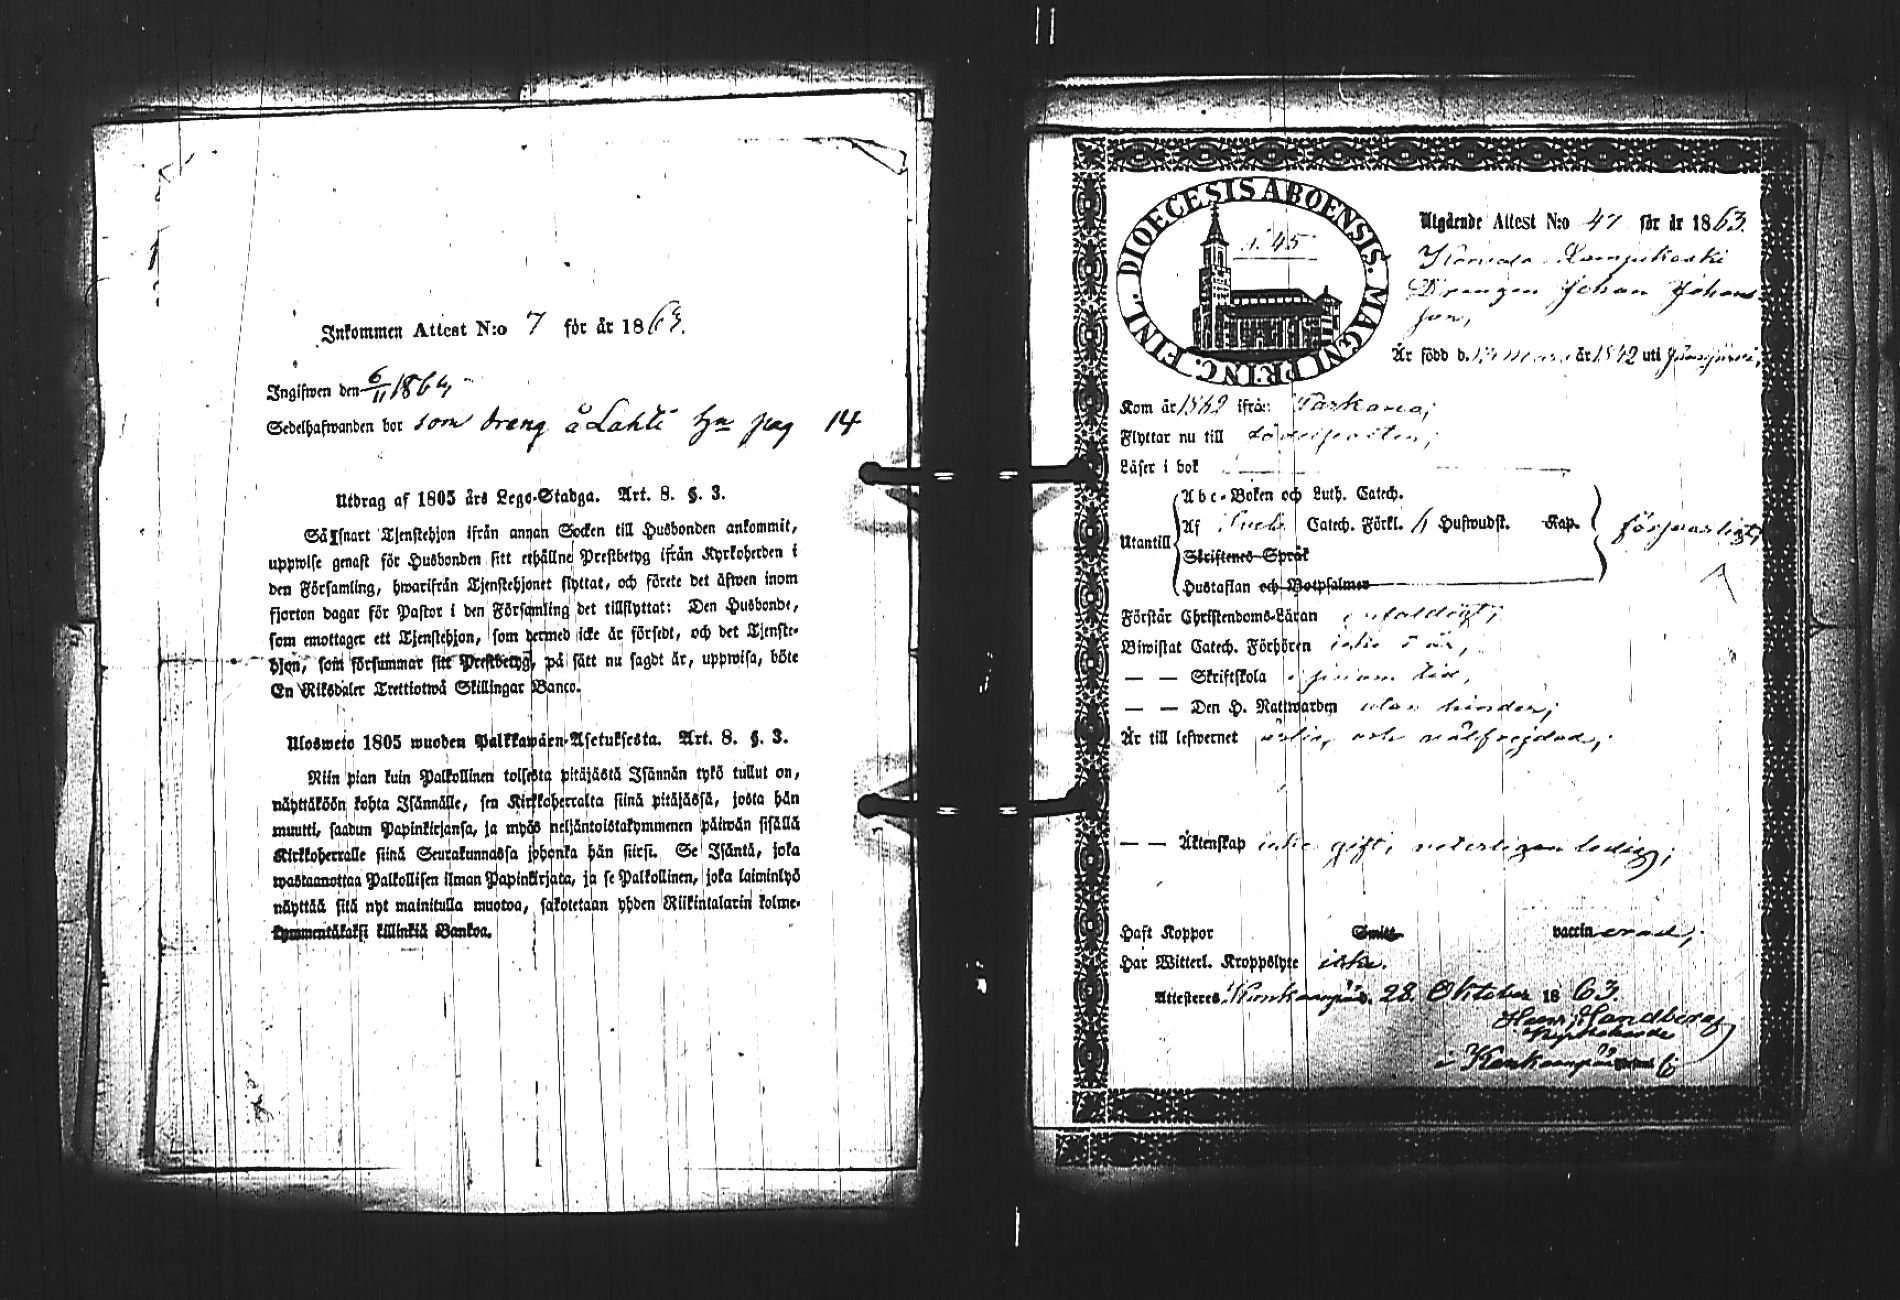 Inkommen Attest N:o 7 för år 1863.
Ingifwen den 6/11 1863
Sedelhafwanden bor som dreng å Lahti hn pag 14
Utdrag af 1805 års Lego-Stadga. Art. 8. §. 3.
Så snart Tjenstehjon ifrån annan Socken till Husbonden ankommit,
uppwise genast för Husbonden sitt erhållne Prestbetyg ifrån Kyrkoherden i
den Församling, hwarifrån Tjenstehjonet flyttat, och förete det äfwen inom
fjorton dagar för Pastor i den Församling det tillflyttat: Den Husbonde,
som emottager ett Tjenstehjon, som dermed icke är försedt, och det Tjenste-
hjon, som försummar sitt Prestbetyg, på sätt nu sagdt är, uppwisa, böte
En Riksdaler Trettiotwå Skillingar Banco.
Ulosweto 1805 wuoden Palkkawäen-Asetuksesta. Art. 8. §. 3.
Niin pian kuin Palkollinen toisesta pitäjästä Isännän tykö tullut on,
näyttäköön kohta Isännälle, sen Kirkkoherralta siinä pitäjässä, josta hän
muutti, saadun Papinkirjansa, ja myös neljäntoistakymmenen päiwän sisällä
Kirkkoherralle siinä Seurakunnassa johonka hän siirsi. Se Isäntä, joka
wastaanottaa Palkollisen ilman Papinkirjata, ja se Palkollinen, joka laiminlyö
näyttää sitä nyt mainitulla muotoa, sakotetaan yhden Riikintalarin kolme-
kymmentäkaksi killinkiä Bankoa.
FINL. DIOECESIS ABOENSIS. MAGNI PRINC.
45
Utgående Attest N:o 47 för år 1863.
Drengen Johan Johans
son,
Är född d. 13 mars år 1842 uti
Kom år 1862 ifrån Parkano;
Flyttar nu till
Läser i bok
Abc-Boken och Luth. Catech.
Utantill Af Catech. Förkl. Hufwudst. Kap. försvarligt;
Skriftenes Språk
Hustaflan och Botpsalmer
Förstår Christendoms-Läran enfaldigt;
Biwistat Catech. Förhören icke i år,
— — Skriftskola i sinom tid,
— — Den H. Nattwarden utan hinder;
Är till lefwernet ärlig och välfrejdad;
— — Äktenskap icke gift, veterligen ledig;
Haft Koppor Smitt vaccinerad;
Har Witterl. Kroppslyte icke.
Attesteres Kankaanpää d. 28. Oktober 1863.
Handberg
Kyrkoherde
i Kankaanpää